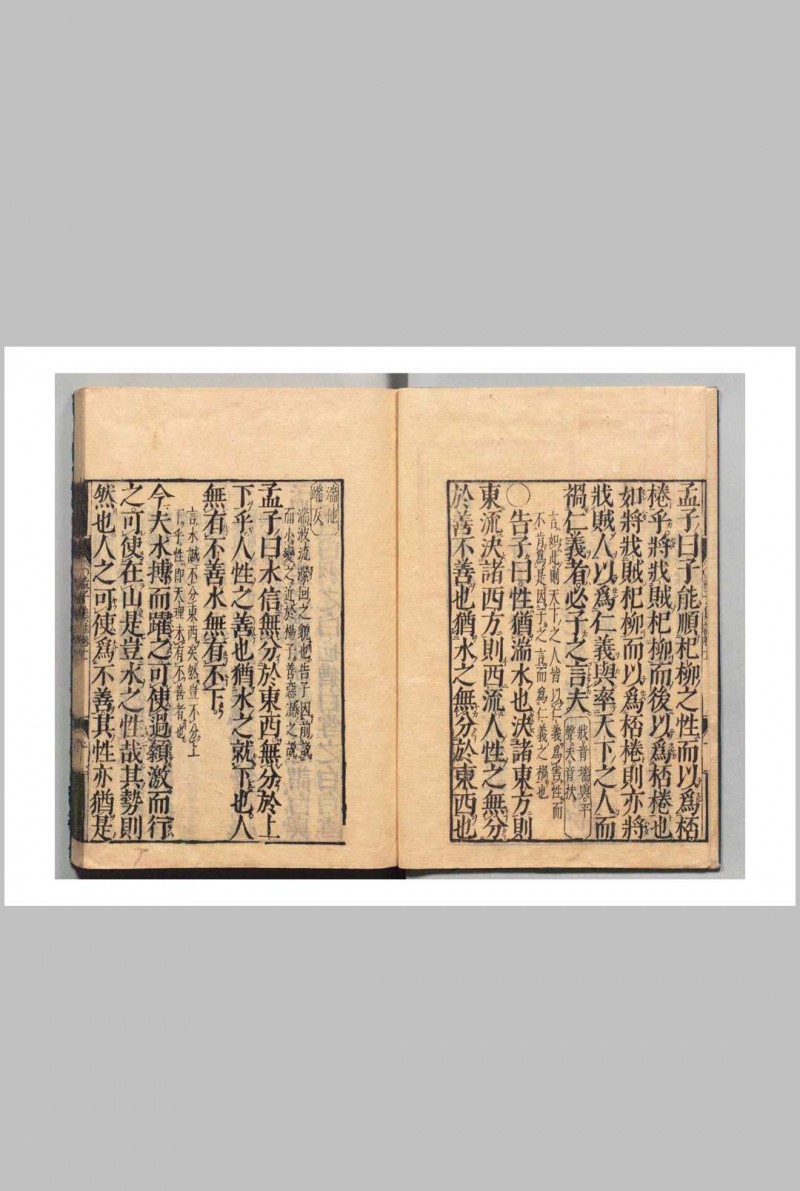 孟子曰子能順杞柳之性而以爲桮
棬乎將戕賊杞柳而後以爲桮棬也
如將戕賊杞柳而以爲桮棬則亦將
戕賊人以爲仁義與率天下之人而
禍仁義者必子之言夫
戕音墻與平
聲夫音扶
言如此則天下之人皆以仁義爲害性而
不肯爲是因子之言而爲仁義之禍也
○告子曰性猶湍水也決諸東方則
東流決諸西方則西流人性之無分
於善不善也猶水之無分於東西也
湍他
端反
湍波流瀠回之貌也告子因前說
而小變之近於揚子善惡混之說
孟子曰水信無分於東西無分於上
下乎人性之善也猶水之就下也人
無有不善水無有不下
言水誠不分東西矣然豈不分上
下乎性即天理未有不善者也
今夫水搏而躍之可使過顙激而行
之可使在山是豈水之性哉其勢則
然也人之可使爲不善其性亦猶是